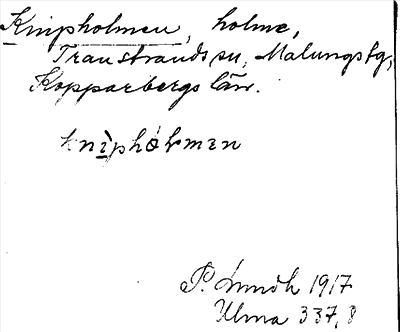 Knipholmen, holme,
Transtrands sn, Malungs tg,
Kopparbergs län.
knìphól̥mən
P. Lundh 1917
Ulma 337,8